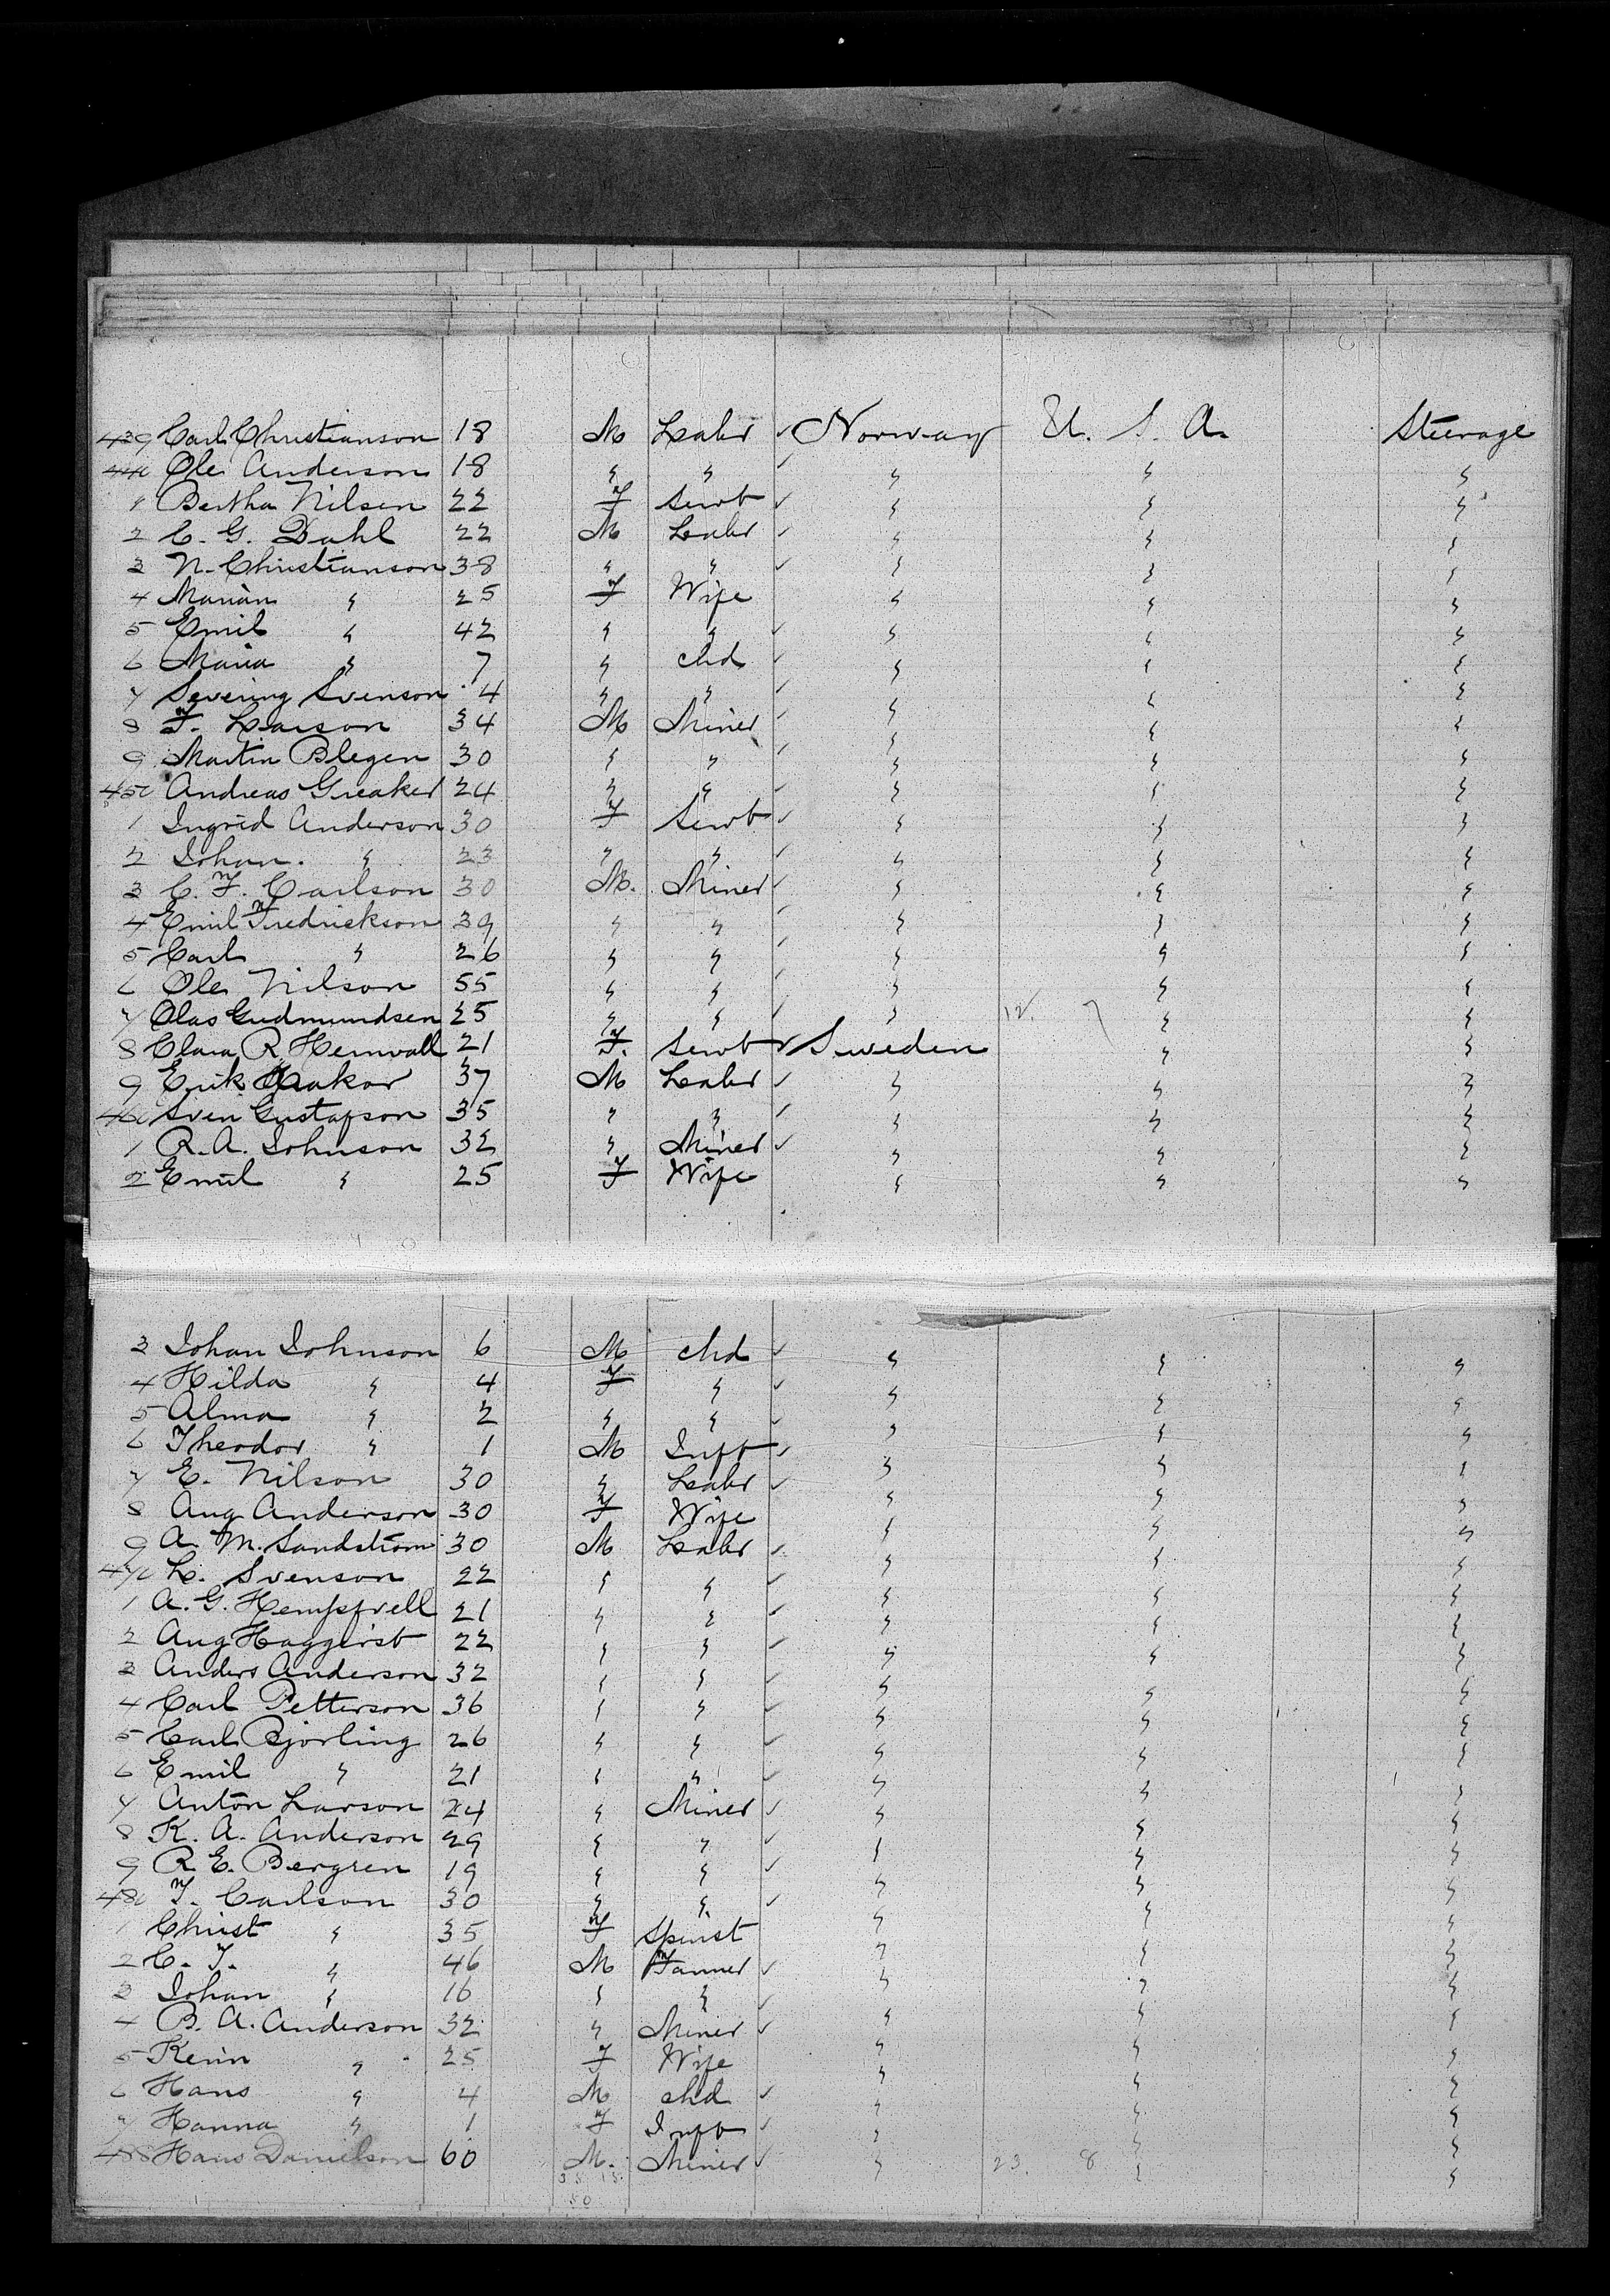 439 Carl Christianson 18 M Labr ✓ Norway U. S. A. Steerage
440 Ole Anderson 18 " " ✓ " " "
1 Bertha Nilsen 22 F Servt ✓ " " "
2 C. G. Dahl 22 M Labr ✓ " " "
3 N. Christianson 38 " " ✓ " " "
4 Marian " 25 F Wife " " "
5 Emil " 42 " " ✓ " " "
6 Maria " 7 " chd ✓ " " "
7 Severing Svenson 4 " " ✓ " " "
8 F. Larson 34 M Miner ✓ " " "
9 Martin Blegen 30 " " ✓ " " "
450 Andreas Greaker 24 " " ✓ " " "
1 Ingrid Anderson 30 F Servt ✓ " " "
2 Johan. " 23 " " ✓ " " "
3 C. F. Carlson 30 M. Miner ✓ " " "
4 Emil Fredrickson 39 " " ✓ " " "
5 Carl " 26 " " ✓ " " "
6 Ole Nilson 55 " " ✓ " " "
7 Olas Gudmundsen 25 " " ✓ " 12. 7 " "
8 Clara R. Hernvall 21 F. Servt ✓ Sweden " "
9 Erik 37 M Labr ✓ " " "
460 Sven Gustafson 35 " " ✓ " " "
1 R. A. Johnson 32 " Miner ✓ " " "
2 Emil " 25 F Wife " " "
3 Johan Johnson 6 M chd ✓ " " "
4 Hilda " 4 F " ✓ " " "
5 Alma " 2 " " ✓ " " "
6 Theodor " 1 M Inft ✓ " " "
7 E. Nilson 30 " Labr ✓ " " "
8 Aug Anderson 30 F Wife " " "
9 A. M. Sandstrom 30 M Labr ✓ " " "
470 L. Svenson 22 " " ✓ " " "
1 A. G. 21 " " ✓ " " "
2 Aug Haggerst 22 " " ✓ " " "
3 Anders Anderson 32 " " ✓ " " "
4 Carl Petterson 36 " " ✓ " " "
5 Carl Bjorling 26 " " ✓ " " "
6 Emil " 21 " " ✓ " " "
7 Anton Larson 24 " Miner ✓ " " "
8 K. A. Anderson 29 " " ✓ " " "
9 R. E. Bergren 19 " " ✓ " " "
480 T. Carlson 30 " " ✓ " " "
1 Christ " 35 F Spinst " " "
2 C. T. " 46 M Farmer ✓ " " "
3 Johan " 16 " " ✓ " " "
4 B. A. Anderson 32 " Miner ✓ " " "
5 Kerin " 25 F Wife " " "
6 Hans " 4 M chd ✓ " " "
7 Hanna " 1 F Inft ✓ " " "
488 Hans Danielson 60 M. Miner ✓ " 23. 8 " "
50